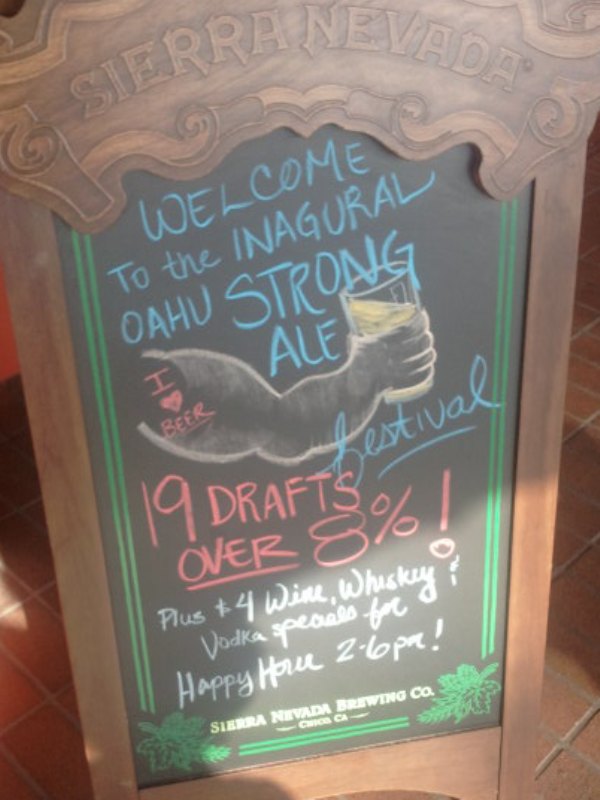 SIERRA NEVADA
WELCOME
To the INAGURAL
OAHU STRONG
ALE
festival
I
BEER
19 DRAFTS
OVER 8% !
Plus $4 Wine, Whiskey &
Vodka specials for
Happy Hour 2-6pm!
SIERRA NEVADA BREWING CO.
CHICO, CA